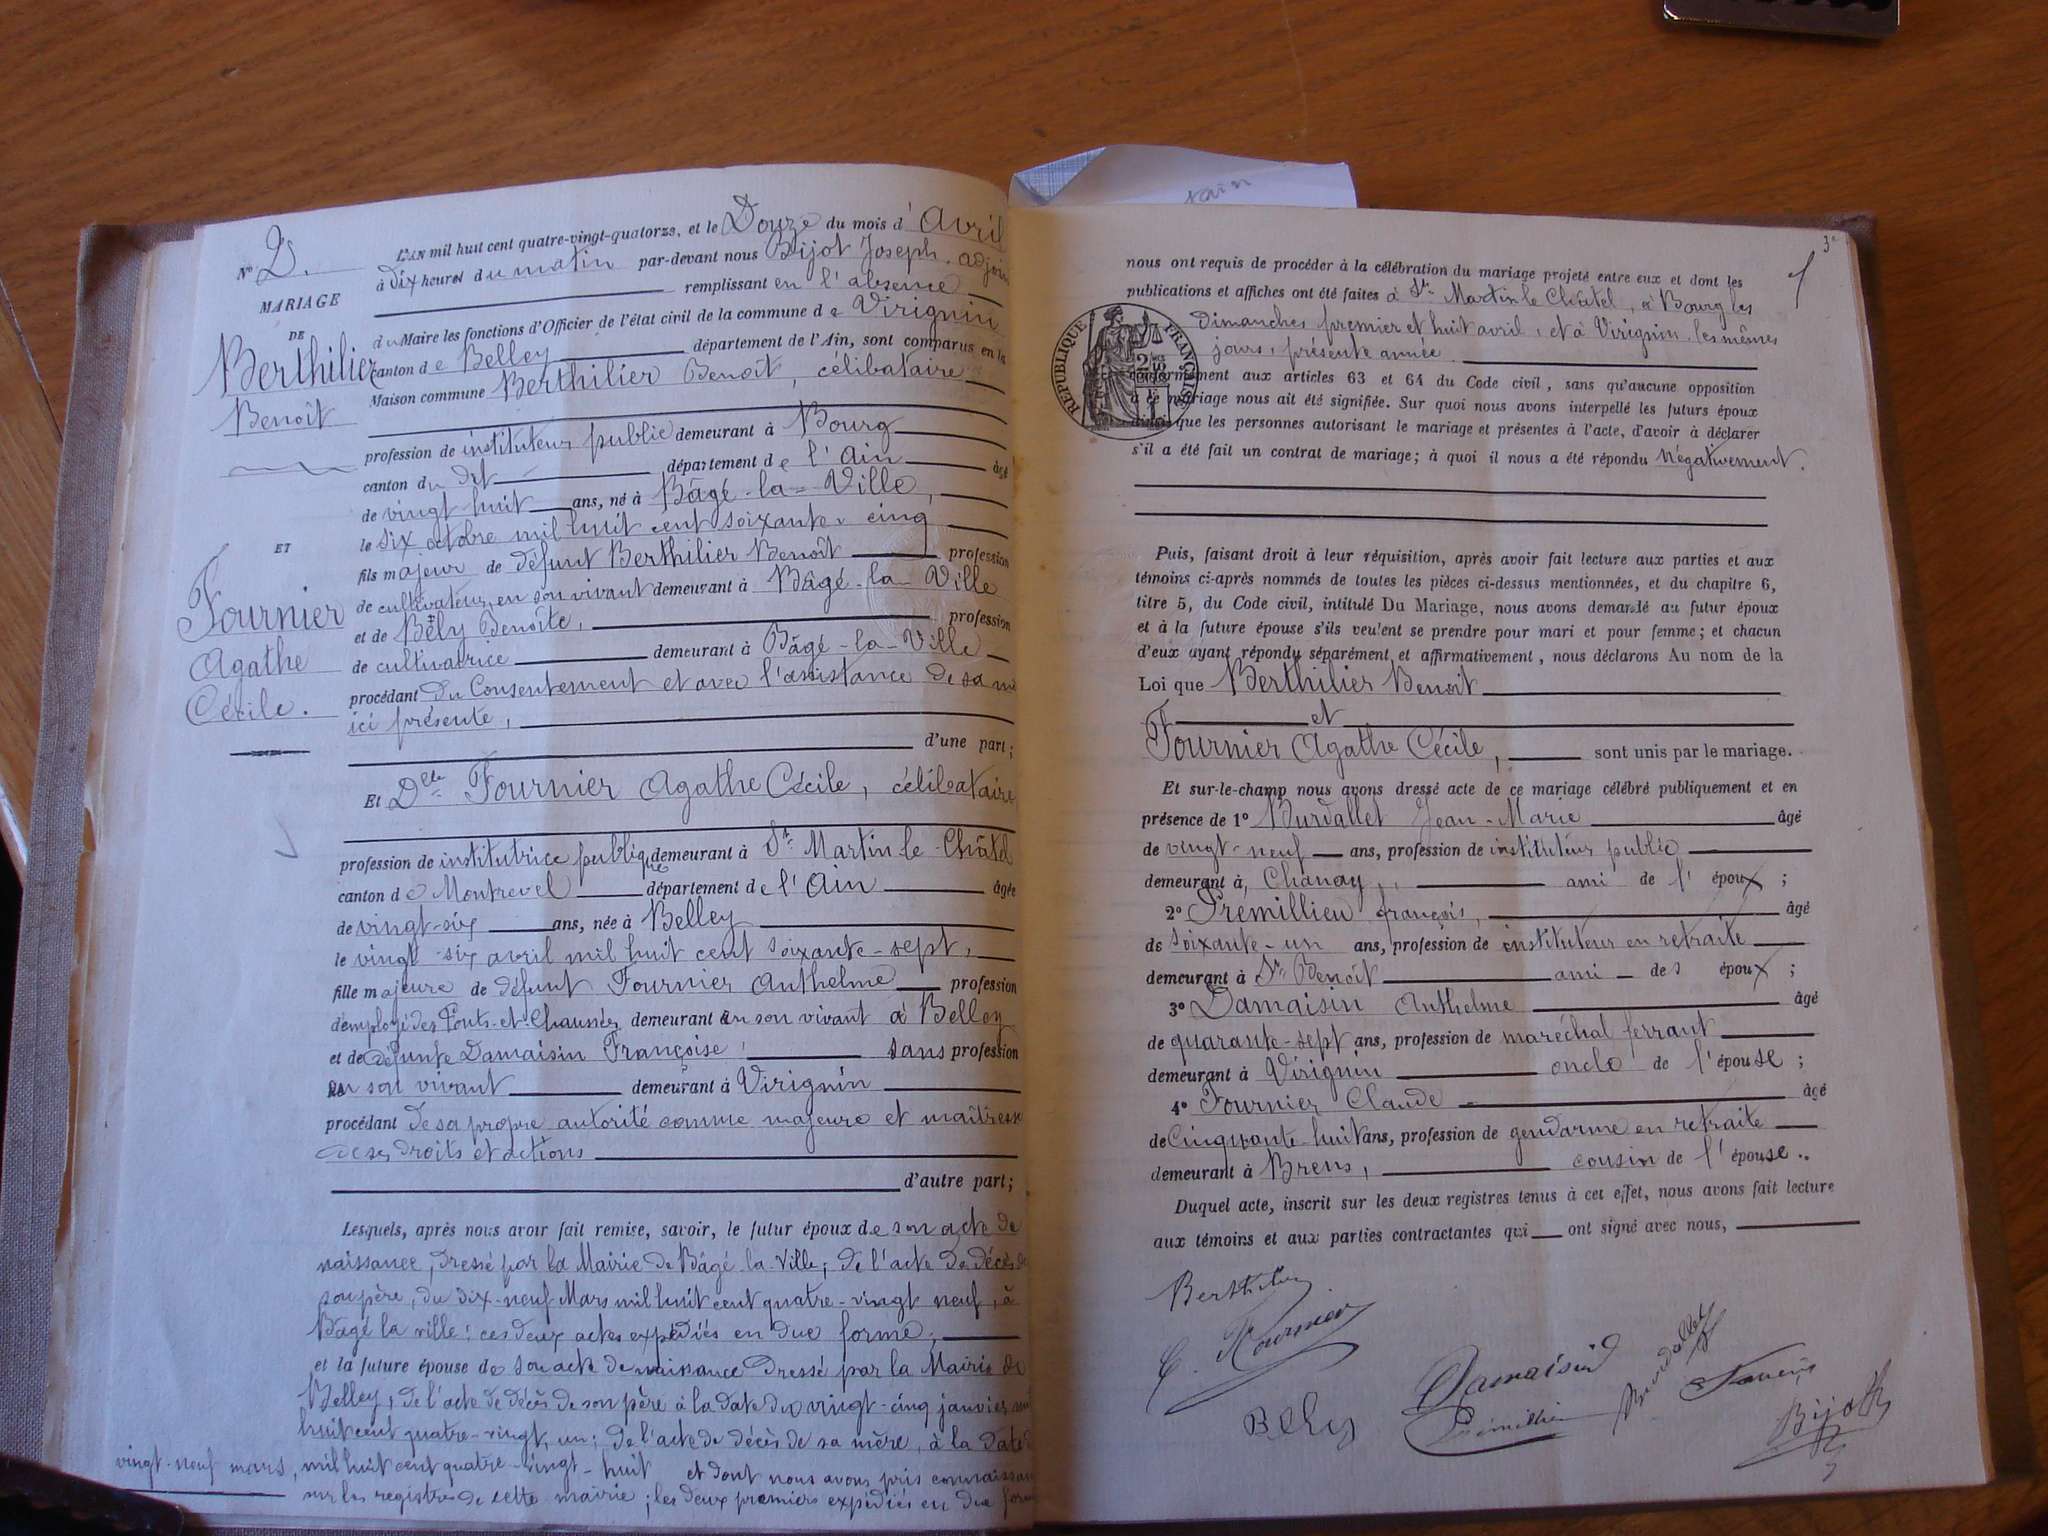 sain
N° 2.
MARIAGE
DE
Berthilier
Benoît
ET
Fournier
Agathe
Cécile.
L'AN mil huit cent quatre-vingt-quatorze, et le Douze du mois d'Avril
à dix heures du matin par-devant nous Bijot Joseph, adjoint
remplissant en l'absence
du Maire les fonctions d'Officier de l'état civil de la commune de Virignin
canton de Belley département de l'Ain, sont comparus en la
Maison commune Berthilier Benoît, célibataire
profession de instituteur public demeurant à Bourg
canton du dit département de l'Ain âgé
de vingt huit ans, né à Bâgé-la-Ville,
le six octobre mil huit cent soixante-cinq
fils majeur de défunt Berthilier Benoît profession
de cultivateur en son vivant demeurant à Bâgé-la-Ville
et de Bély Benoîte, profession
de cultivatrice demeurant à Bâgé-la-Ville
procédant du Consentement et avec l'assistance de sa
ici présente,
d'une part;
Et Delle Fournier Agathe Cécile, célibataire
profession de institutrice publique demeurant à St Martin le Châtel
canton de Montrevel département de l'Ain âgée
de vingt-six ans, née à Belley
le vingt-six avril mil huit cent soixante-sept,
fille majeure de défunt Fournier Anthelme profession
d'employé des Ponts-et-Chaussées demeurant en son vivant à Belley
et de défunte Damaisin Françoise, sans profession
en son vivant demeurant à Virignin
procédant de sa propre autorité comme majeure et maîtresse
de ses droits et actions
d'autre part;
Lesquels, après nous avoir fait remise, savoir, le futur époux de son acte de
naissance, dressé par la Mairie de Bâgé-la-Ville; de l'acte de décès de
son père, du dix-neuf Mars mil huit cent quatre-vingt neuf, à
Bâgé la ville; ces deux actes expédiés en due forme;
et la future épouse de son acte de naissance dressé par la Mairie de
Belley, de l'acte de décès de son père à la date du vingt-cinq janvier mil
huit cent quatre-vingt, un; de l'acte de décès de sa mère, à la date du
vingt-neuf mars, mil huit cent quatre-vingt-huit et dont nous avons pris connaissance
sur les registres de cette mairie; les deux premiers expédiés en due forme
3e
nous ont requis de procéder à la célébration du mariage projeté entre eux et dont les
publications et affiches ont été faites à St Martin le Châtel, à Bourg les
dimanches premier et huit avril, et à Virignin, les mêmes
jours, présente année
RÉPUBLIQUE FRANÇAISE
conformément aux articles 63 et 64 du Code civil, sans qu'aucune opposition
à ce mariage nous ait été signifiée. Sur quoi nous avons interpellé les futurs époux
ainsi que les personnes autorisant le mariage et présentes à l'acte, d'avoir à déclarer
s'il a été fait un contrat de mariage; à quoi il nous a été répondu Négativement.
Puis, faisant droit à leur réquisition, après avoir fait lecture aux parties et aux
témoins ci-après nommés de toutes les pièces ci-dessus mentionnées, et du chapitre 6,
titre 5, du Code civil, intitulé Du Mariage, nous avons demandé au futur époux
et à la future épouse s'ils veulent se prendre pour mari et pour femme; et chacun
d'eux ayant répondu séparément et affirmativement, nous déclarons Au nom de la
Loi que Berthilier Benoît
et
Fournier Agathe Cécile, sont unis par le mariage.
Et sur-le-champ nous avons dressé acte de ce mariage célébré publiquement et en
présence de 1° Burdallet Jean-Marie âgé
de vingt-neuf ans, profession de instituteur public
demeurant à Chanay, ami de l'époux;
2° Prémillieu françois, âgé
de soixante-un ans, profession de instituteur en retraite
demeurant à St Benoît ami des époux;
3° Damaisin Anthelme âgé
de quarante-sept ans, profession de maréchal ferrant
demeurant à Virignin oncle de l'épouse;
4° Fournier Claude âgé
de Cinquante huit ans, profession de gendarme en retraite
demeurant à Brens, cousin de l'épouse..
Duquel acte, inscrit sur les deux registres tenus à cet effet, nous avons fait lecture
aux témoins et aux parties contractantes qui ont signé avec nous,
Berthilier
C. Fournier
Bély
Damaisin
Prémillieu
Burdallet
Bijot